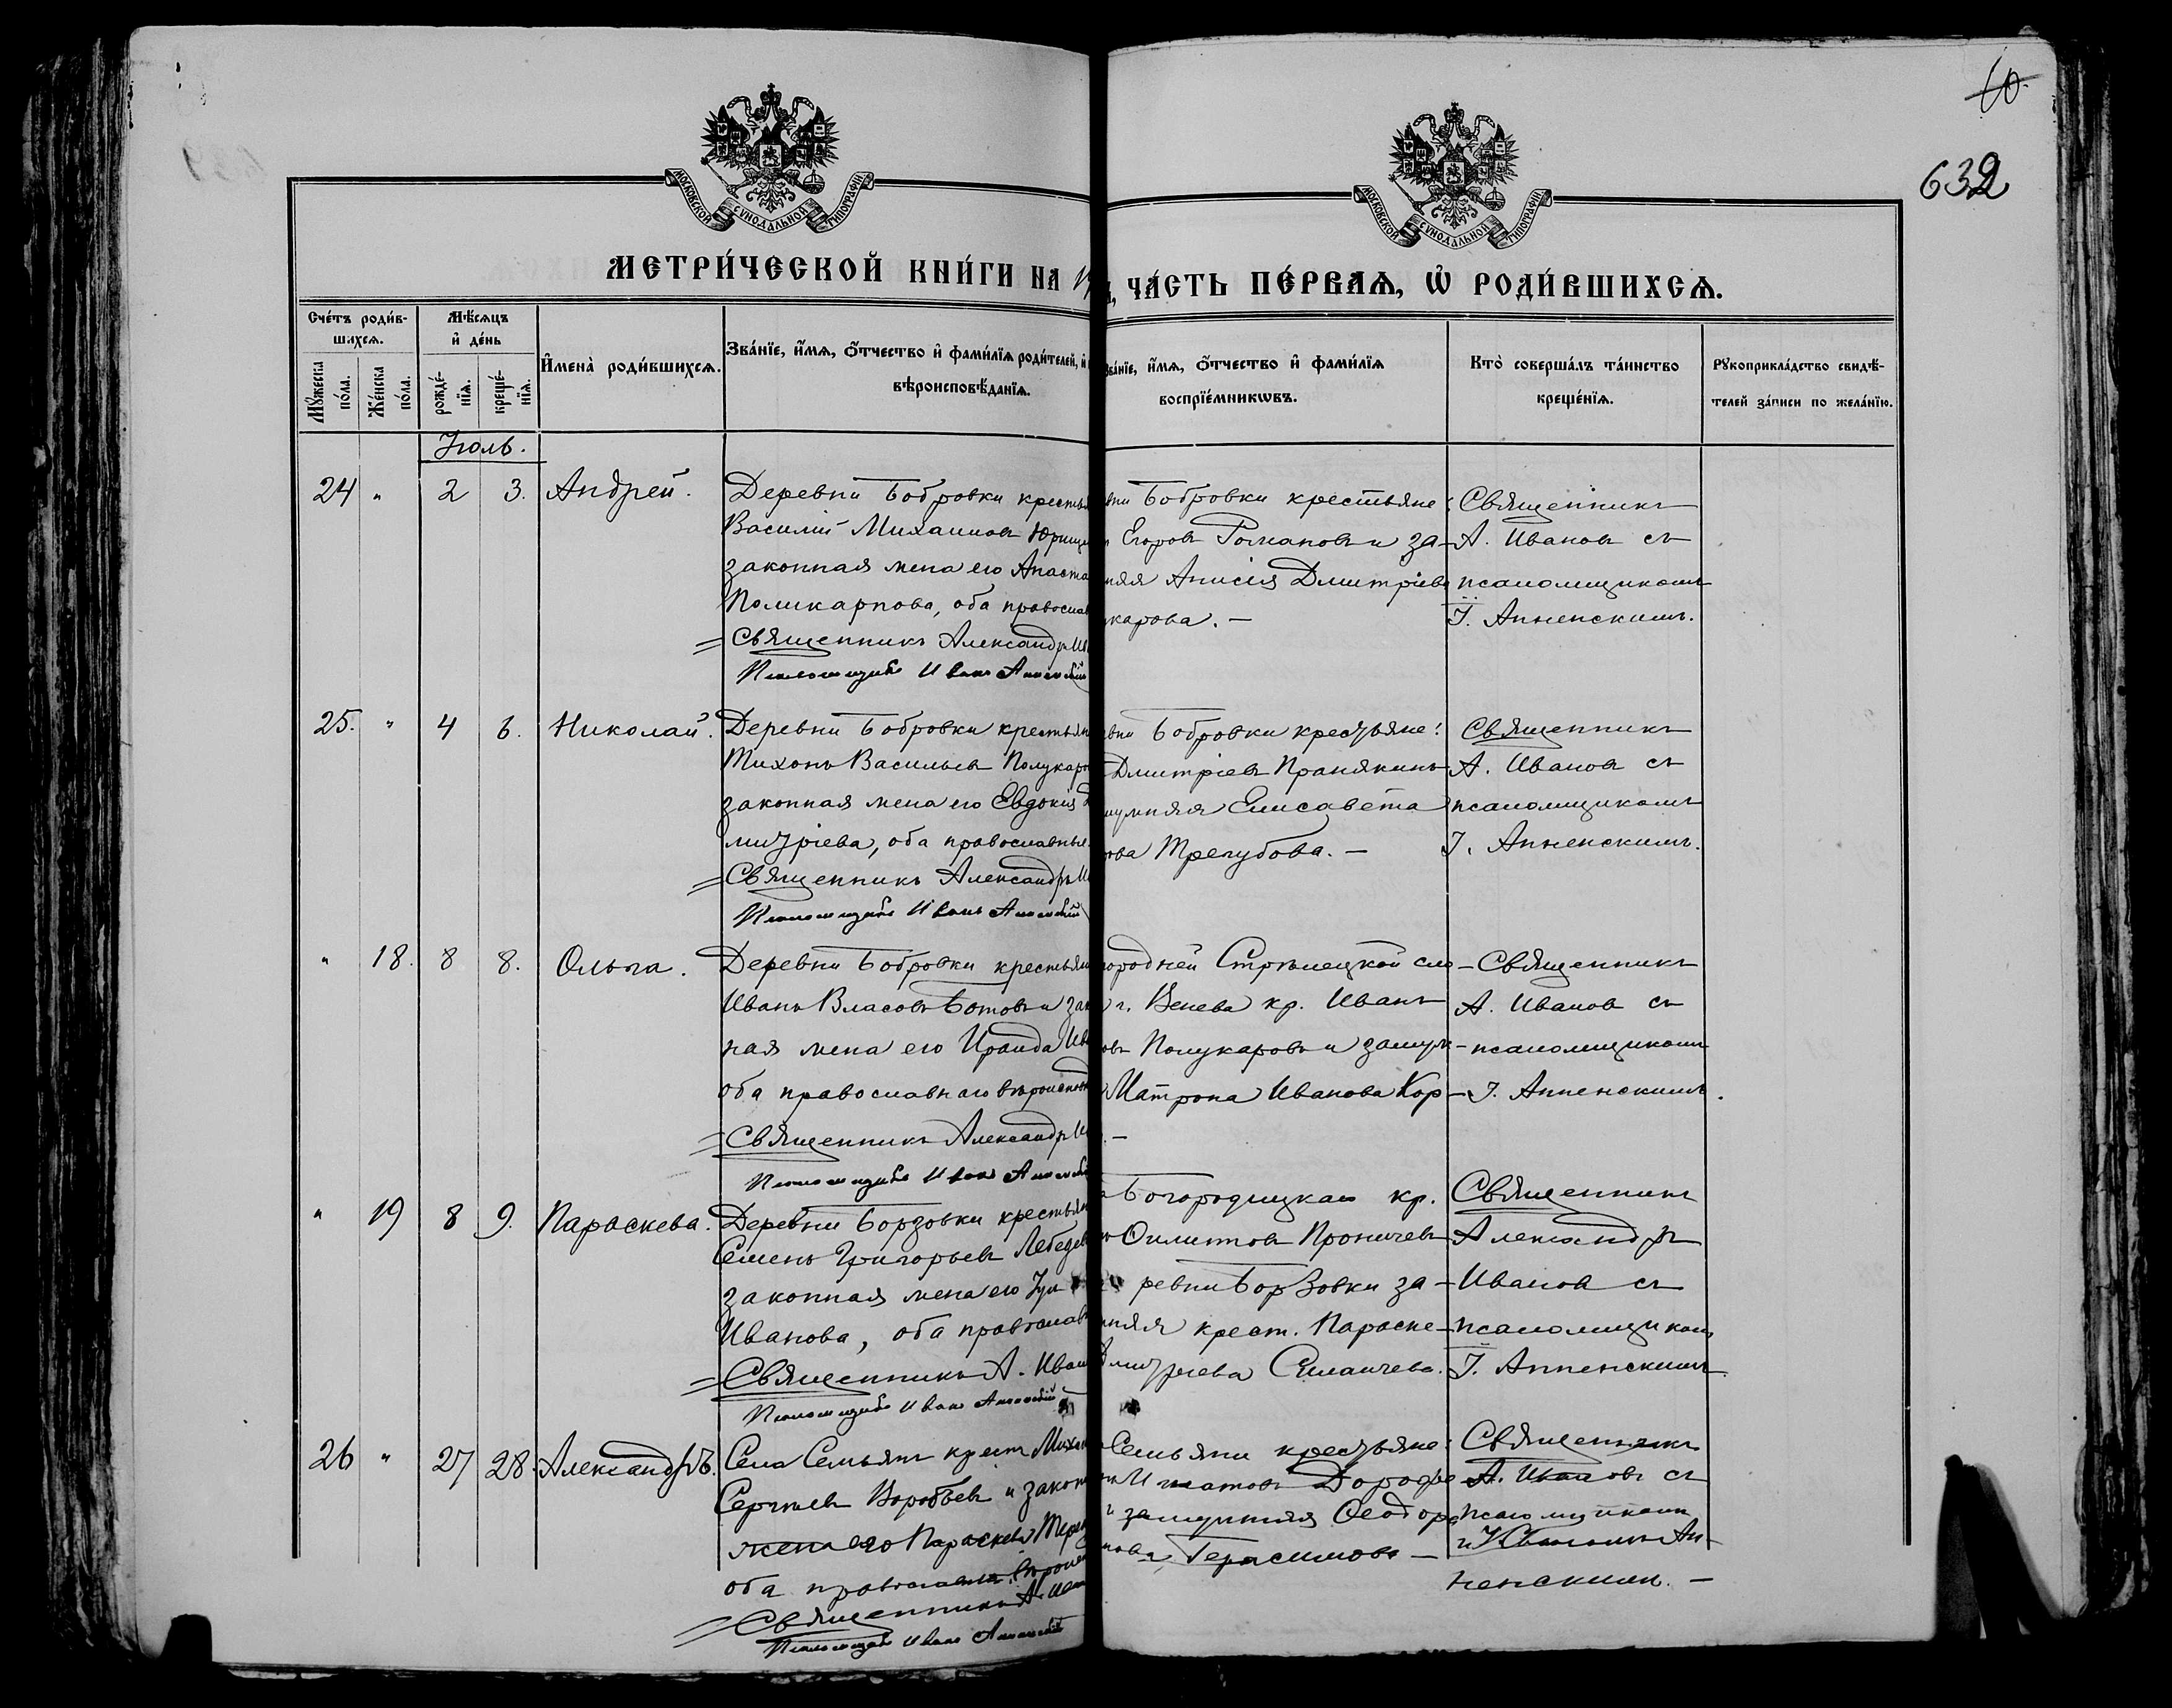 10.
632
МОСКОВСКОЙ СУНОДАЛЬНОЙ ТИПОГРАФІИ
МОСКОВСКОЙ СУНОДАЛЬНОЙ ТИПОГРАФІИ
МЕТРИ́ЧЕСКОЙ КНИ́ГИ НА
ЧА́СТЬ ПЕ́РВАѦ, Ѡ҆ РОДИ́ВШИХСѦ.
Сче́тъ роди́в-
шихсѧ.
Мꙋ́жеска по́ла.
Же́нска по́ла.
Мѣ́сѧцъ
и҆ де́нь
рожде́-
нїѧ.
креще́-
нїѧ.
И҆мена̀ роди́вшихсѧ.
Зва́нїе, и҆́мѧ, ѻ҆́тчество и҆ фами́лїѧ роди́телей, и҆
вѣроисповѣ́данїѧ.
зва́нїе, и҆́мѧ, ѻ҆́тчество и҆ фами́лїѧ
воспрїе́мникѡвъ.
Кто̀ соверша́лъ та́инство
креще́нїѧ.
Рꙋкоприкла́дство свидѣ́-
телей за́писи по жела́нїю.
Іюль.
24 " 2 3. Андрей.
Деревни Бобровки крестья
Василій Михаиловъ Юрищ
законная жена его Анаста
Поликарпова, оба правосла
Священникъ Александръ Ив
Псаломщикъ Иванъ Анненскій
вни Бобровки крестьяне:
Егоровъ Романовъ и за-
няя Анисія Дмитріева
карова. —
Священникъ
А. Ивановъ съ
псаломщикомъ
І. Анненскимъ.
25. " 4 6. Николай.
Деревни Бобровки крестьян
Тихонъ Васильевъ Полукаро
законная жена его Евдокія Д
митріева, оба православные.
Священникъ Александръ И
Псаломщикъ Иванъ Анненскій
вни Бобровки крестьяне:
Дмитріевъ Пранякинъ
мужняя Елисавета
ова Трегубова. —
Священникъ
А. Ивановъ съ
псаломщикомъ
І. Анненскимъ.
" 18. 8 8. Ольга.
Деревни Бобровки крестьян
Иванъ Власовъ Ботовъ и зак
ная жена его Ираида Ив
оба православнаго вѣроисповѣд
Священникъ Александръ И
Псаломщикъ Иванъ Анненскій
городней Стрѣлецкой сло-
г. Венева кр. Иванъ
овъ Полукаровъ и замуж-
Матрона Иванова Кор-
. —
Священникъ
А. Ивановъ съ
псаломщикомъ
І. Анненскимъ.
" 19 8 9. Параскева.
Деревни Борзовки крестьян
Семенъ Григорьевъ Лебедев
законная жена его Іул
Иванова, оба православ
Священникъ А. Иван
Псаломщикъ Иванъ Анненскій
Богородицкаго кр.
Филиповъ Проничевъ
ревни Борзовки за-
жняя крест. Параске-
Дмитріева Симаичева.
Священникъ
Александръ
Ивановъ съ
псаломщикомъ
І. Анненскимъ
26 " 27 28. Александръ.
Села Семьянъ крест. Миха
Сергѣевъ Воробьевъ и закон
жена его Параскева Терен
оба православн. вѣроисп
Священникъ А. Иван
Псаломщикъ Иванъ Анненскій
Семьяни крестьяне:
Игнатовъ Дорофе
и замужняя Ѳеодор
нова Герасимова —
Священникъ
А. Ивановъ съ
псаломщикомъ
Іваномъ Ан-
ненскимъ. —